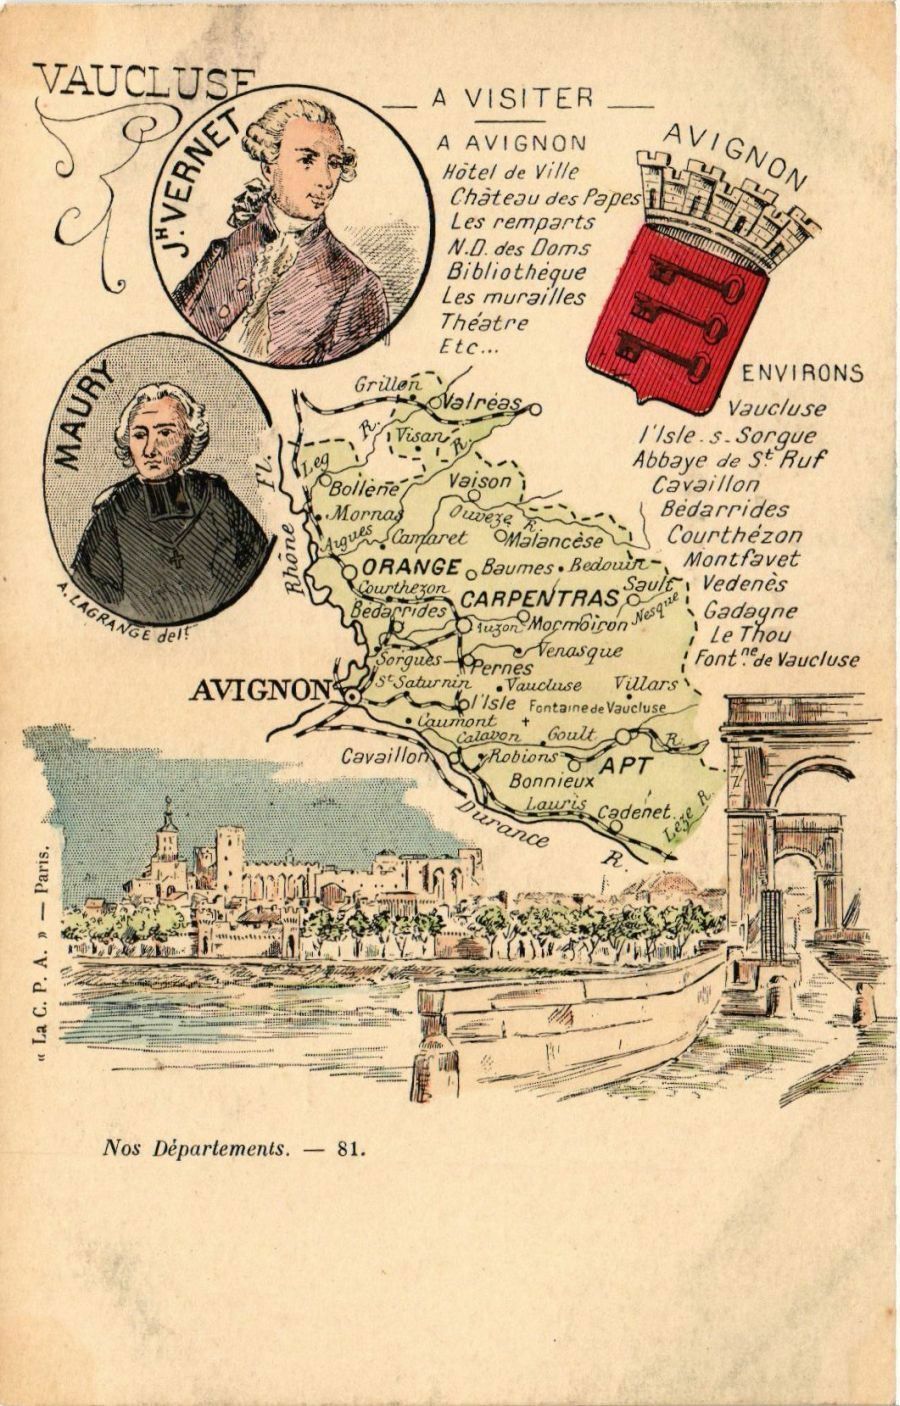 VAUCLUSE
JH VERNET
MAURY
A. LAGRANGE delt.
— A VISITER —
A AVIGNON
Hôtel de Ville
Château des Papes
Les remparts
N.D. des Doms
Bibliothéque
Les murailles
Théatre
Etc...
AVIGNON
ENVIRONS
Vaucluse
l'Isle. s. Sorgue
Abbaye de St Ruf
Cavaillon
Bédarrides
Courthézon
Montfavet
Vedenès
Gadagne
Le Thou
Font.ne de Vaucluse
Grillon
Valréas
R.
Visan
R.
Leg
Bollène
Vaison
Fl.
Rhône
Mornas
Ouvèze R.
Aigues
Camaret
Malancèse
ORANGE
Baumes
Bedouin
Courthezon
Sault
Bédarrides
CARPENTRAS
Nesque
Mormoiron
Sorgues
Pernes
Venasque
AVIGNON
St Saturnin
Vaucluse
Villars
l'Isle
Fontaine de Vaucluse
Caumont
Calavon
Goult
R.
Cavaillon
Robions
APT
Bonnieux
Lauris
Cadenet
Lèze R.
Durance R.
« La C. P. A. » — Paris.
Nos Départements. — 81.